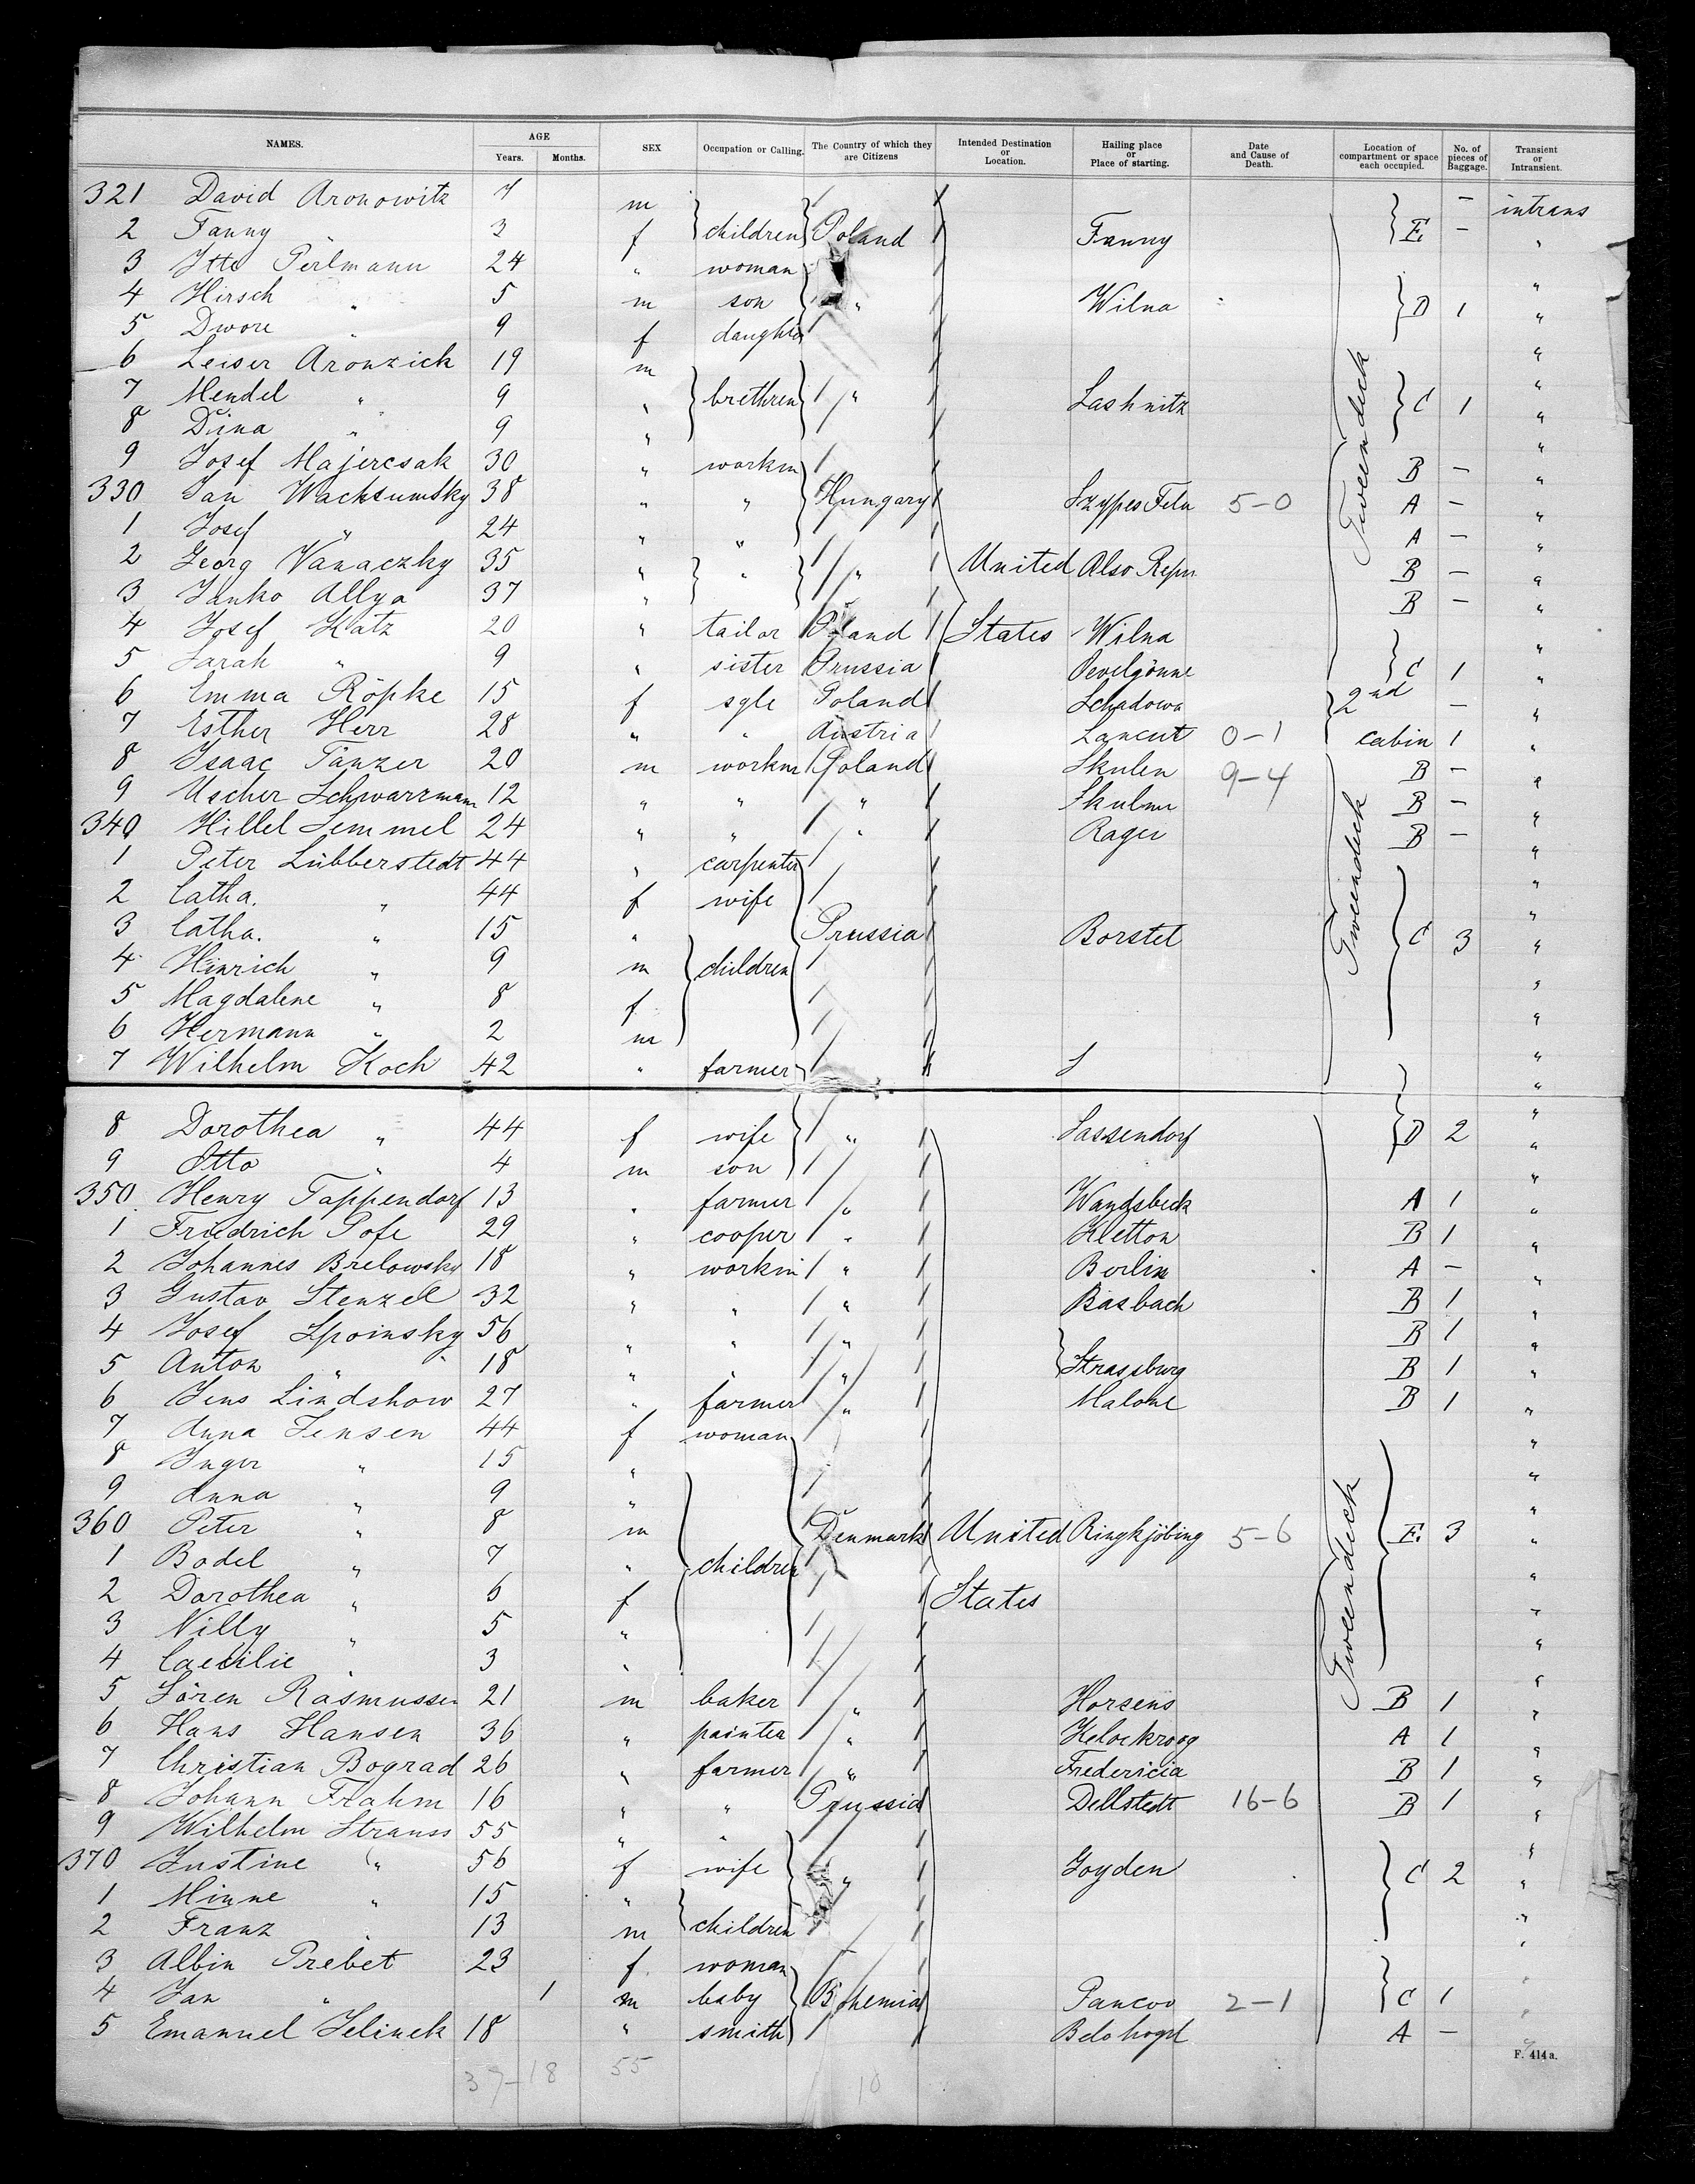 NAMES. AGE Years. Months. SEX Occupation or Calling. The Country of which they are Citizens Intended Destination or Location. Hailing place or Place of starting. Date and Cause of Death. Location of compartment or space each occupied. No. of pieces of Baggage. Transient or Intransient.
321 David Aronowitz 7 m — intrans
2 Fanny " 3 f children Poland Fanny E. — "
3 Itte Perlmann 24 " woman "
4 Hirsch " 5 m son " Wilna D 1 "
5 Dwore " 9 f daughter "
6 Leiser Aronzick 19 m "
7 Mendel " 9 " brethren " Lashnitz C 1 "
8 Dina " 9 " "
9 Josef Majercsak 30 " workm B — "
330 Jan Wachsumsky 38 " " Hungary Szypes Felu 5-0 A — "
1 Josef " 24 " " A — "
2 Georg Vanaczky 35 " " " United Also Repn B — "
3 Janko Allya 37 " B — "
4 Josef Katz 20 " tailor Poland States Wilna "
5 Sarah " 9 " sister Prussia Ovelgönne C 1 "
6 Emma Röpke 15 f sgle Poland Schadowa 2nd — "
7 Esther Herr 28 " " Austria Lancut 0-1 cabin 1 "
8 Isaac Tänzer 20 m workm Poland Skulen 9-4 B — "
9 Uscher Schwarzmann 12 " " " Skulen B — "
340 Hillel Semmel 24 " " " Rager B — "
1 Peter Lübberstedt 44 " carpenter "
2 Catha. " 44 f wife "
3 Catha. " 15 " Prussia Borstel C 3 "
4 Hinrich " 9 m children "
5 Magdalene " 8 f "
6 Hermann " 2 m "
7 Wilhelm Koch 42 " farmer "
Tweendeck
Tweendeck
8 Dorothea " 44 f wife " Sassendorf D 2 "
9 Otto " 4 m son "
350 Henry Tappendorf 13 " farmer " Wandsbeck A 1 "
1 Friedrich Pofe 29 " cooper " Kletton B 1 "
2 Johannes Brelowsky 18 " workm " Berlin A — "
3 Gustav Stenzel 32 " " " Basbach B 1 "
4 Josef Spoinsky 56 " " " B 1 "
5 Anton " 18 " " " Strassburg B 1 "
6 Jens Lindshow 27 " farmer " Malone B 1 "
7 Anna Jensen 44 f woman "
8 Inger " 15 " "
9 Anna " 9 " "
360 Peter " 8 m Denmark United Ringkjöbing 5-6 E. 3 "
1 Bodel " 7 " children "
2 Dorothea " 6 f States "
3 Nilly " 5 " "
4 Caecilie " 3 " "
5 Sören Rasmussen 21 m baker " Horsens B 1 "
6 Hans Hansen 36 " painter " A 1 "
7 Christian Bograd 26 " farmer " Fredericia B 1 "
8 Johann Frahm 16 " " Prussia Dellstedt 16-6 B 1 "
9 Wilhelm Strauss 55 " " "
370 Justine " 56 f wife " Goyden C 2 "
1 Minne " 15 " "
2 Franz " 13 m children "
3 Albin Prebet 23 f woman "
4 Jan " 1 m baby Bohemia Pancov 2-1 C 1 "
5 Emanuel Jelinek 18 " smith Belohogd A — "
Tweendeck
F. 414 a.
37-18 55 10